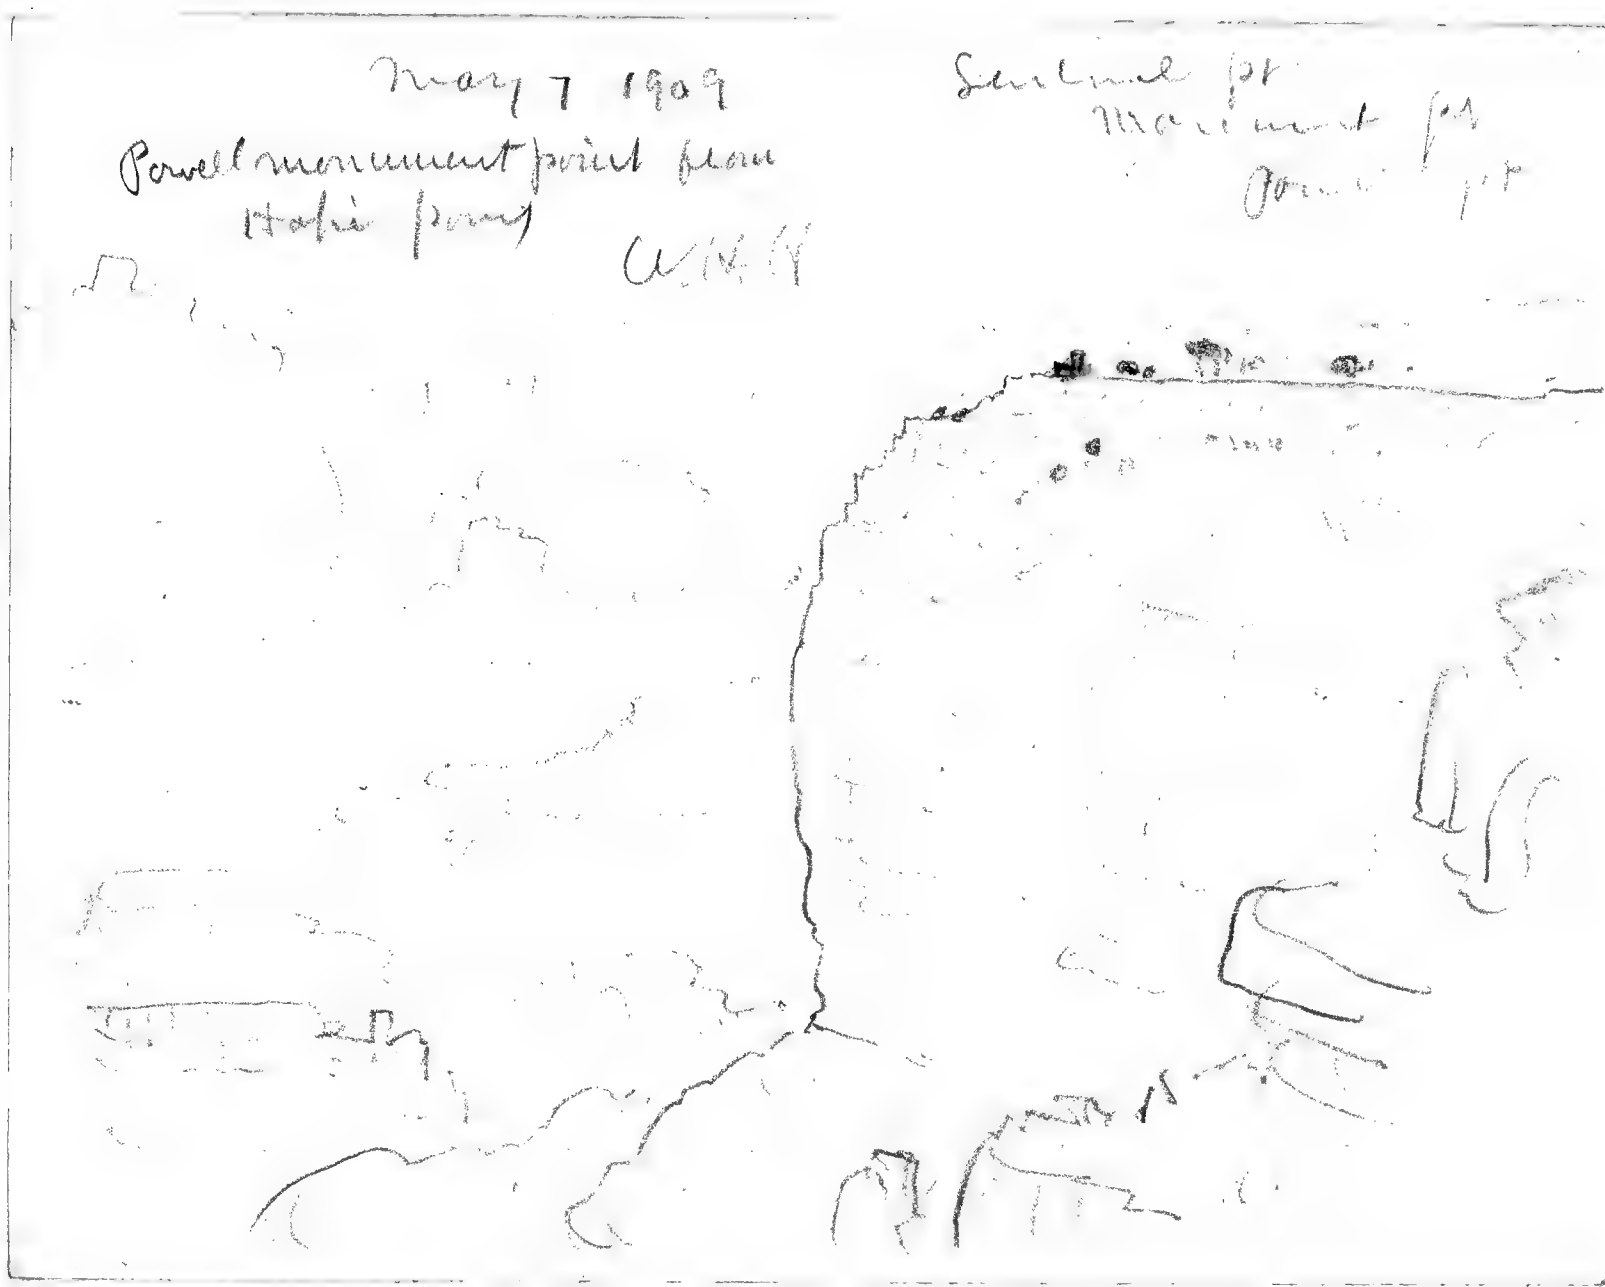 May 7 1909
Powell monument point from
Hopi point
W.H.H
Sentinel pt
Monument pt
pt